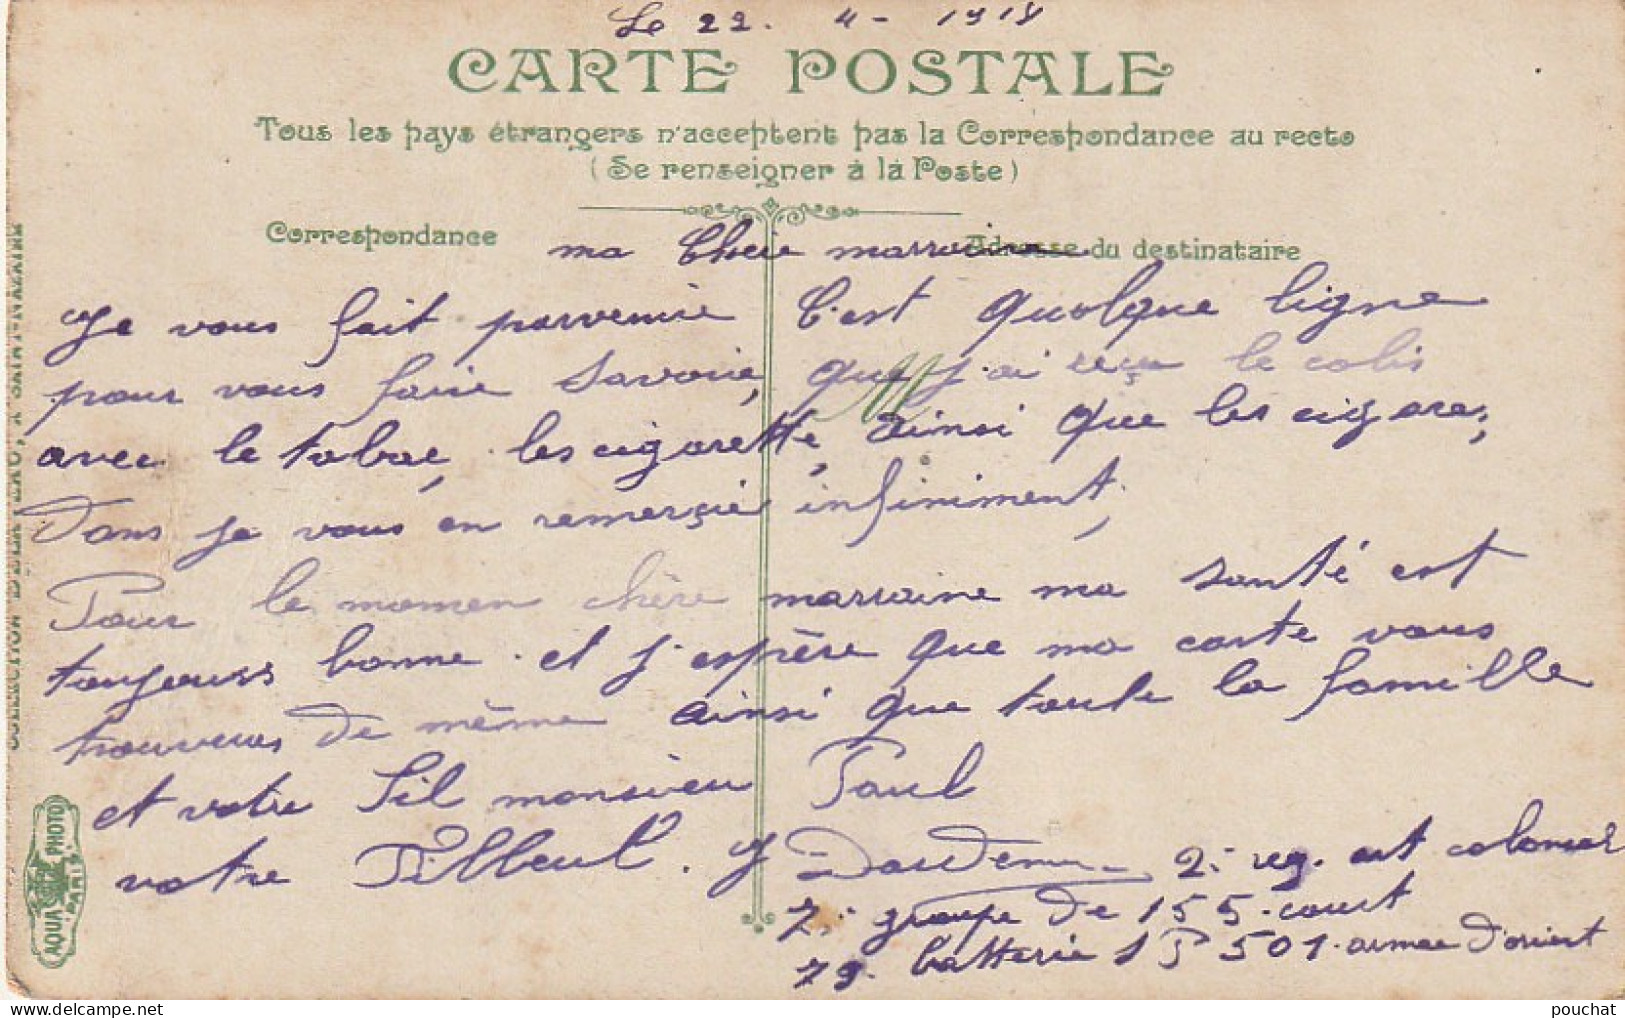 Le 22. 4- 1918
CARTE POSTALE
Tous les pays étrangers n'acceptent pas la Correspondance au recto
(Se renseigner à la Poste)
Correspondance
Adresse du destinataire
ma Cheie marraine
Je vous fait parvenir C'est quelque ligne
pour vous faire savoir, que j'ai reçu le colis
avec le tabac, les cigarette, ainsi que les cigare,
Dans je vous en remerçie infiniment,
Pour le momen chère marraine ma santé est
toujours bonne. et j'espère que ma carte vous
trouveras de même ainsi que toute la famille
et votre fil monsieu Paul
votre Filleul. J
2: reg. art colonial
7: groupe de 155. court
79. batterie S P 501. armee d'orient
AQUA PHOTO
PARIS
pouchat